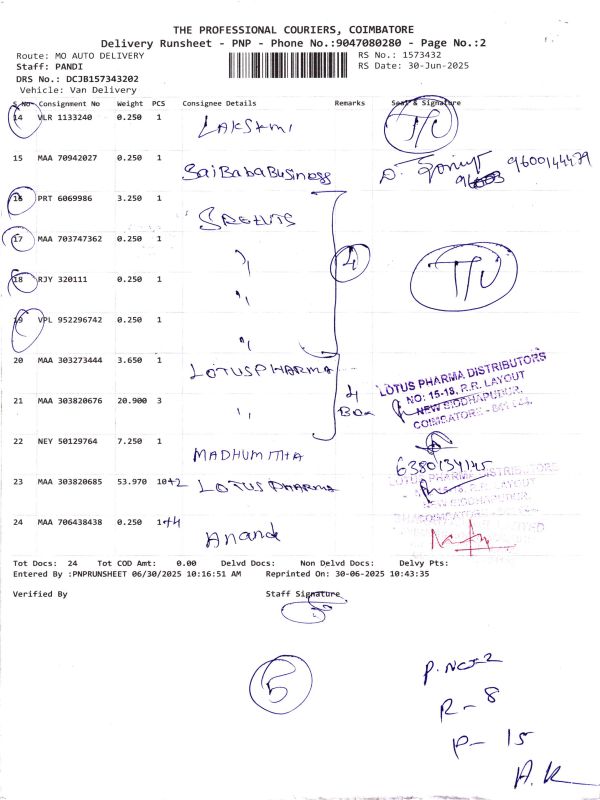 THE PROFESSIONAL COURIERS, COIMBATORE
Delivery Runsheet - PNP - Phone No.:9047080280 - Page No.:2
Route: MO AUTO DELIVERY RS No.: 1573432
Staff: PANDI RS Date: 30-Jun-2025
DRS No.: DCJB157343202
Vehicle: Van Delivery
S.No Consignment No Weight PCS Consignee Details Remarks Seal & Signature
14 VLR 1133240 0.250 1 LAKSHMI T/U
15 MAA 70942027 0.250 1 SaiBabaBusiness 9600144479
16 PRT 6069986 3.250 1
17 MAA 703747362 0.250 1 " 4 T/U
18 RJY 320111 0.250 1 "
19 VPL 952296742 0.250 1 "
20 MAA 303273444 3.650 1 LOTUS PHARMA
21 MAA 303820676 20.900 3 " 4 Box
LOTUS PHARMA DISTRIBUTORS
NO: 15-18, R.R. LAYOUT
NEW SIDDHAPUDUR,
COIMBATORE -
22 NEY 50129764 7.250 1 MADHUMITHA 6380134145
23 MAA 303820685 53.970 10+2 LOTUS PHARMA
LOTUS PHARMA DISTRIBUTORS
NEW SIDDHAPUDUR,
24 MAA 706438438 0.250 1+4 Anand
Tot Docs: 24 Tot COD Amt: 0.00 Delvd Docs: Non Delvd Docs: Delvy Pts:
Entered By :PNPRUNSHEET 06/30/2025 10:16:51 AM Reprinted On: 30-06-2025 10:43:35
Verified By Staff Signature
5
R - 8
P - 15
A.K